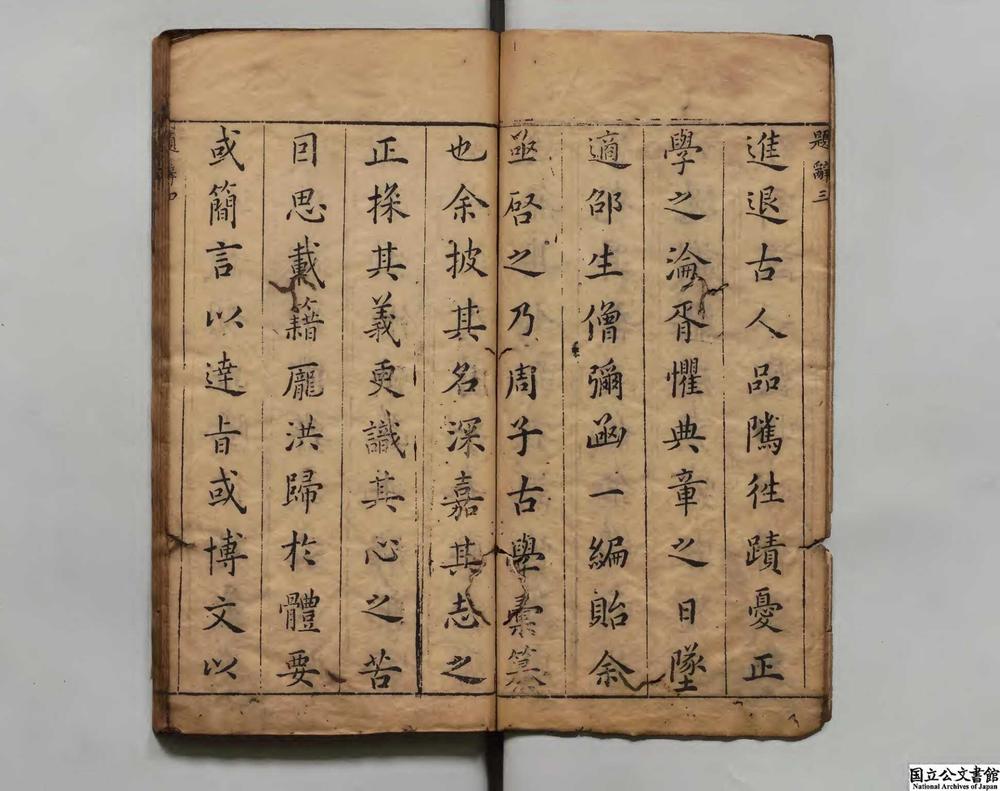 題辭三
進退古人品隲徃蹟憂正
學之淪胥懼典章之日墜
適邵生僧彌函一編貽余
亟啓之乃周子古學彚纂
也余披其名深嘉其志之
正探其義更識其心之苦
囙思載籍龐洪歸於體要
或簡言以達旨或博文以
題辭四
国立公文書館
National Archives of Japan